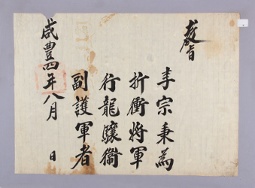 教旨
李宗秉爲
折衝將軍
行龍驤衛
副護軍者
咸豊四年八月　日